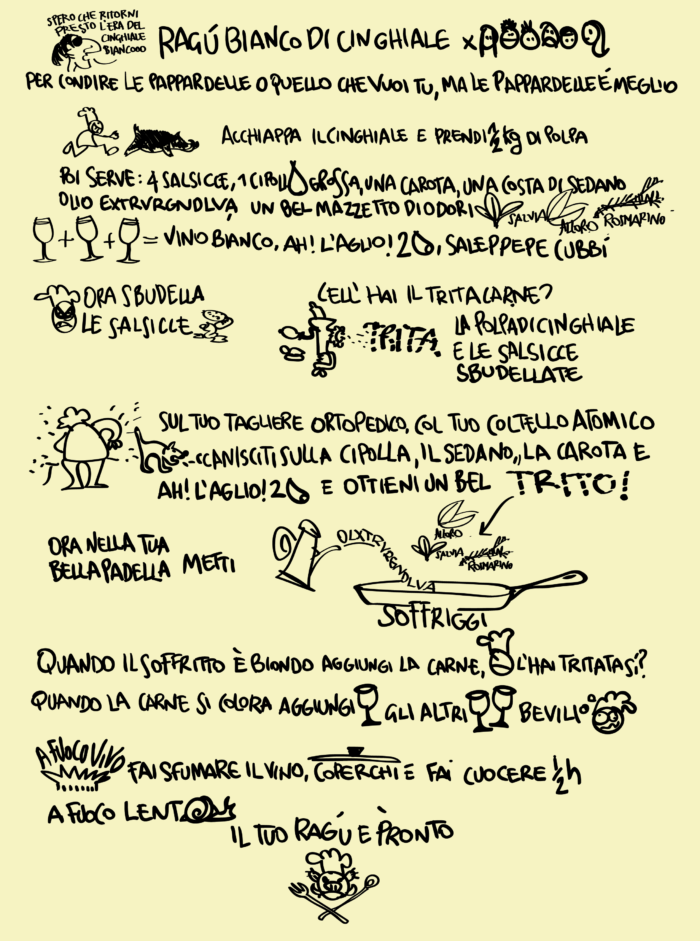 SPERO CHE RITORNI
PRESTO L'ERA DEL
CINGHIALE
BIANCOOO
RAGÚ BIANCO DI CINGHIALE X
PER CONDIRE LE PAPPARDELLE O QUELLO CHE VUOI TU, MA LE PAPPARDELLE É MEGLIO
ACCHIAPPA IL CINGHIALE E PRENDI 1/2 kg DI POLPA
POI SERVE: 4 SALSICCE, 1 CIPOLLA GROSSA, UNA CAROTA, UNA COSTA DI SEDANO
OLIO EXTRVRGNDLVA, UN BEL MAZZETTO DI ODORI SALVIA ALLORO ROSMARINO
+ + = VINO BIANCO, AH! L'AGLIO! 2, SALE PPEPE CUBBÍ
ORA SBUDELLA
LE SALSICCE
CELL' HAI IL TRITACARNE?
TRITA LA POLPA DI CINGHIALE
E LE SALSICCE
SBUDELLATE
SUL TUO TAGLIERE ORTOPEDICO, COL TUO COLTELLO ATOMICO
CCANISCITI SULLA CIPOLLA, IL SEDANO, LA CAROTA E
AH! L'AGLIO! 2 E OTTIENI UN BEL TRITO!
ORA NELLA TUA
BELLA PADELLA METTI
OLXTRVRGNDLVA
ALLORO
SALVIA
ROSMARINO
SOFFRIGGI
QUANDO IL SOFFRITTO È BIONDO AGGIUNGI LA CARNE, L'HAI TRITATA SÍ?
QUANDO LA CARNE SI COLORA AGGIUNGI GLI ALTRI BEVILI
A FUOCO VIVO FAI SFUMARE IL VINO, COPERCHI E FAI CUOCERE 1/2 h
A FUOCO LENTO
IL TUO RAGÚ È PRONTO